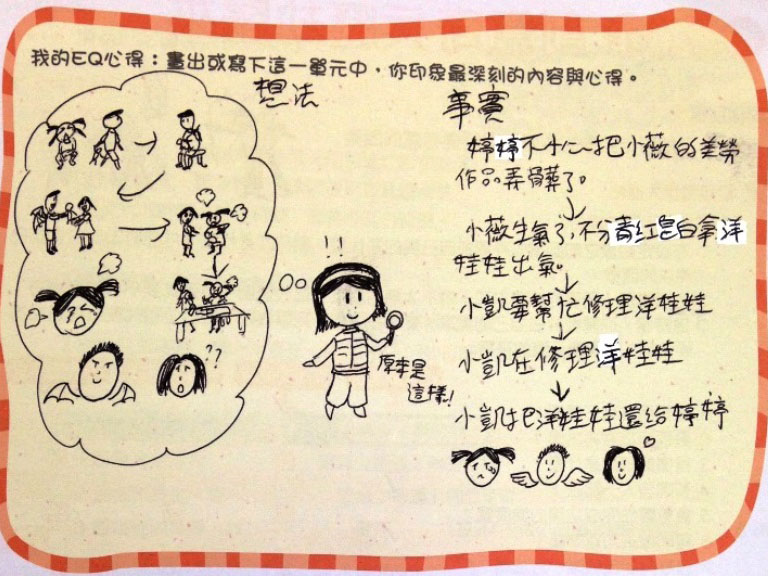 我的EQ心得：畫出或寫下這一單元中，你印象最深刻的內容與心得。
想法
事實
婷婷不小心把小薇的美勞
作品弄髒了。
小薇生氣了，不分青紅皂白拿洋
娃娃出氣。
小凱要幫忙修理洋娃娃
小凱在修理洋娃娃
小凱把洋娃娃還給婷婷
!!
??
原來是
這樣!